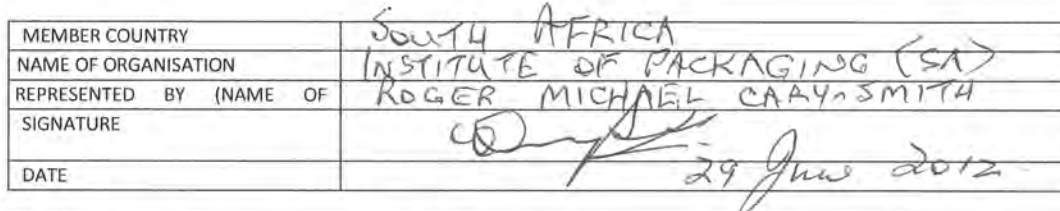 MEMBER COUNTRY SOUTH AFRICA
NAME OF ORGANISATION INSTITUTE OF PACKAGING (SA)
REPRESENTED BY (NAME OF ROGER MICHAEL CARY-SMITH
SIGNATURE
DATE 29 June 2012